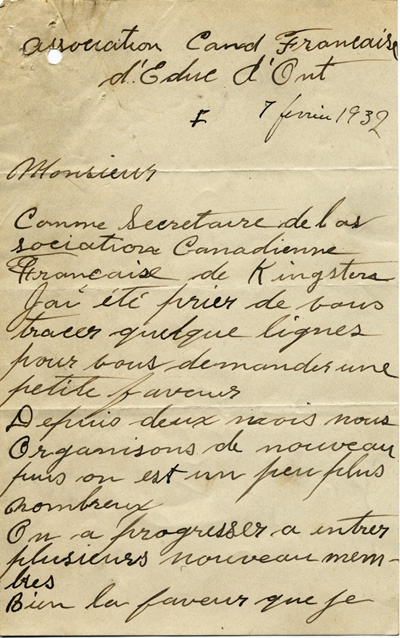 Association Cand Francaise
d'Educ d'Ont
7 fevrier 1932
Monsieur
Comme Secretaire de l'as
sociation Canadienne
Francaise de Kingston
J'ai été prier de vous
tracer quelque lignes
pour vous demander une
petite faveur
Depuis deux mois nous
Organisons de nouveau
puis on est un peu plus
nombreux
On a progresser a entrer
plusieurs nouveau mem-
bres
Bien la faveur que je